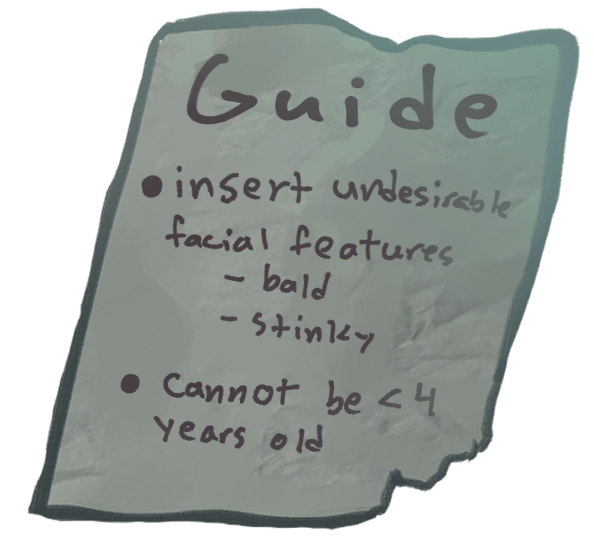 Guide
• insert undesirable
facial features
- bald
- stinky
• Cannot be < 4
years old